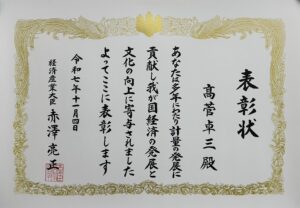 表彰状
高菅卓三殿
あなたは多年にわたり計量の発展に
貢献し我が国経済の発展と
文化の向上に寄与されました
よってここに表彰します
令和七年十一月四日
経済産業大臣 赤澤亮正